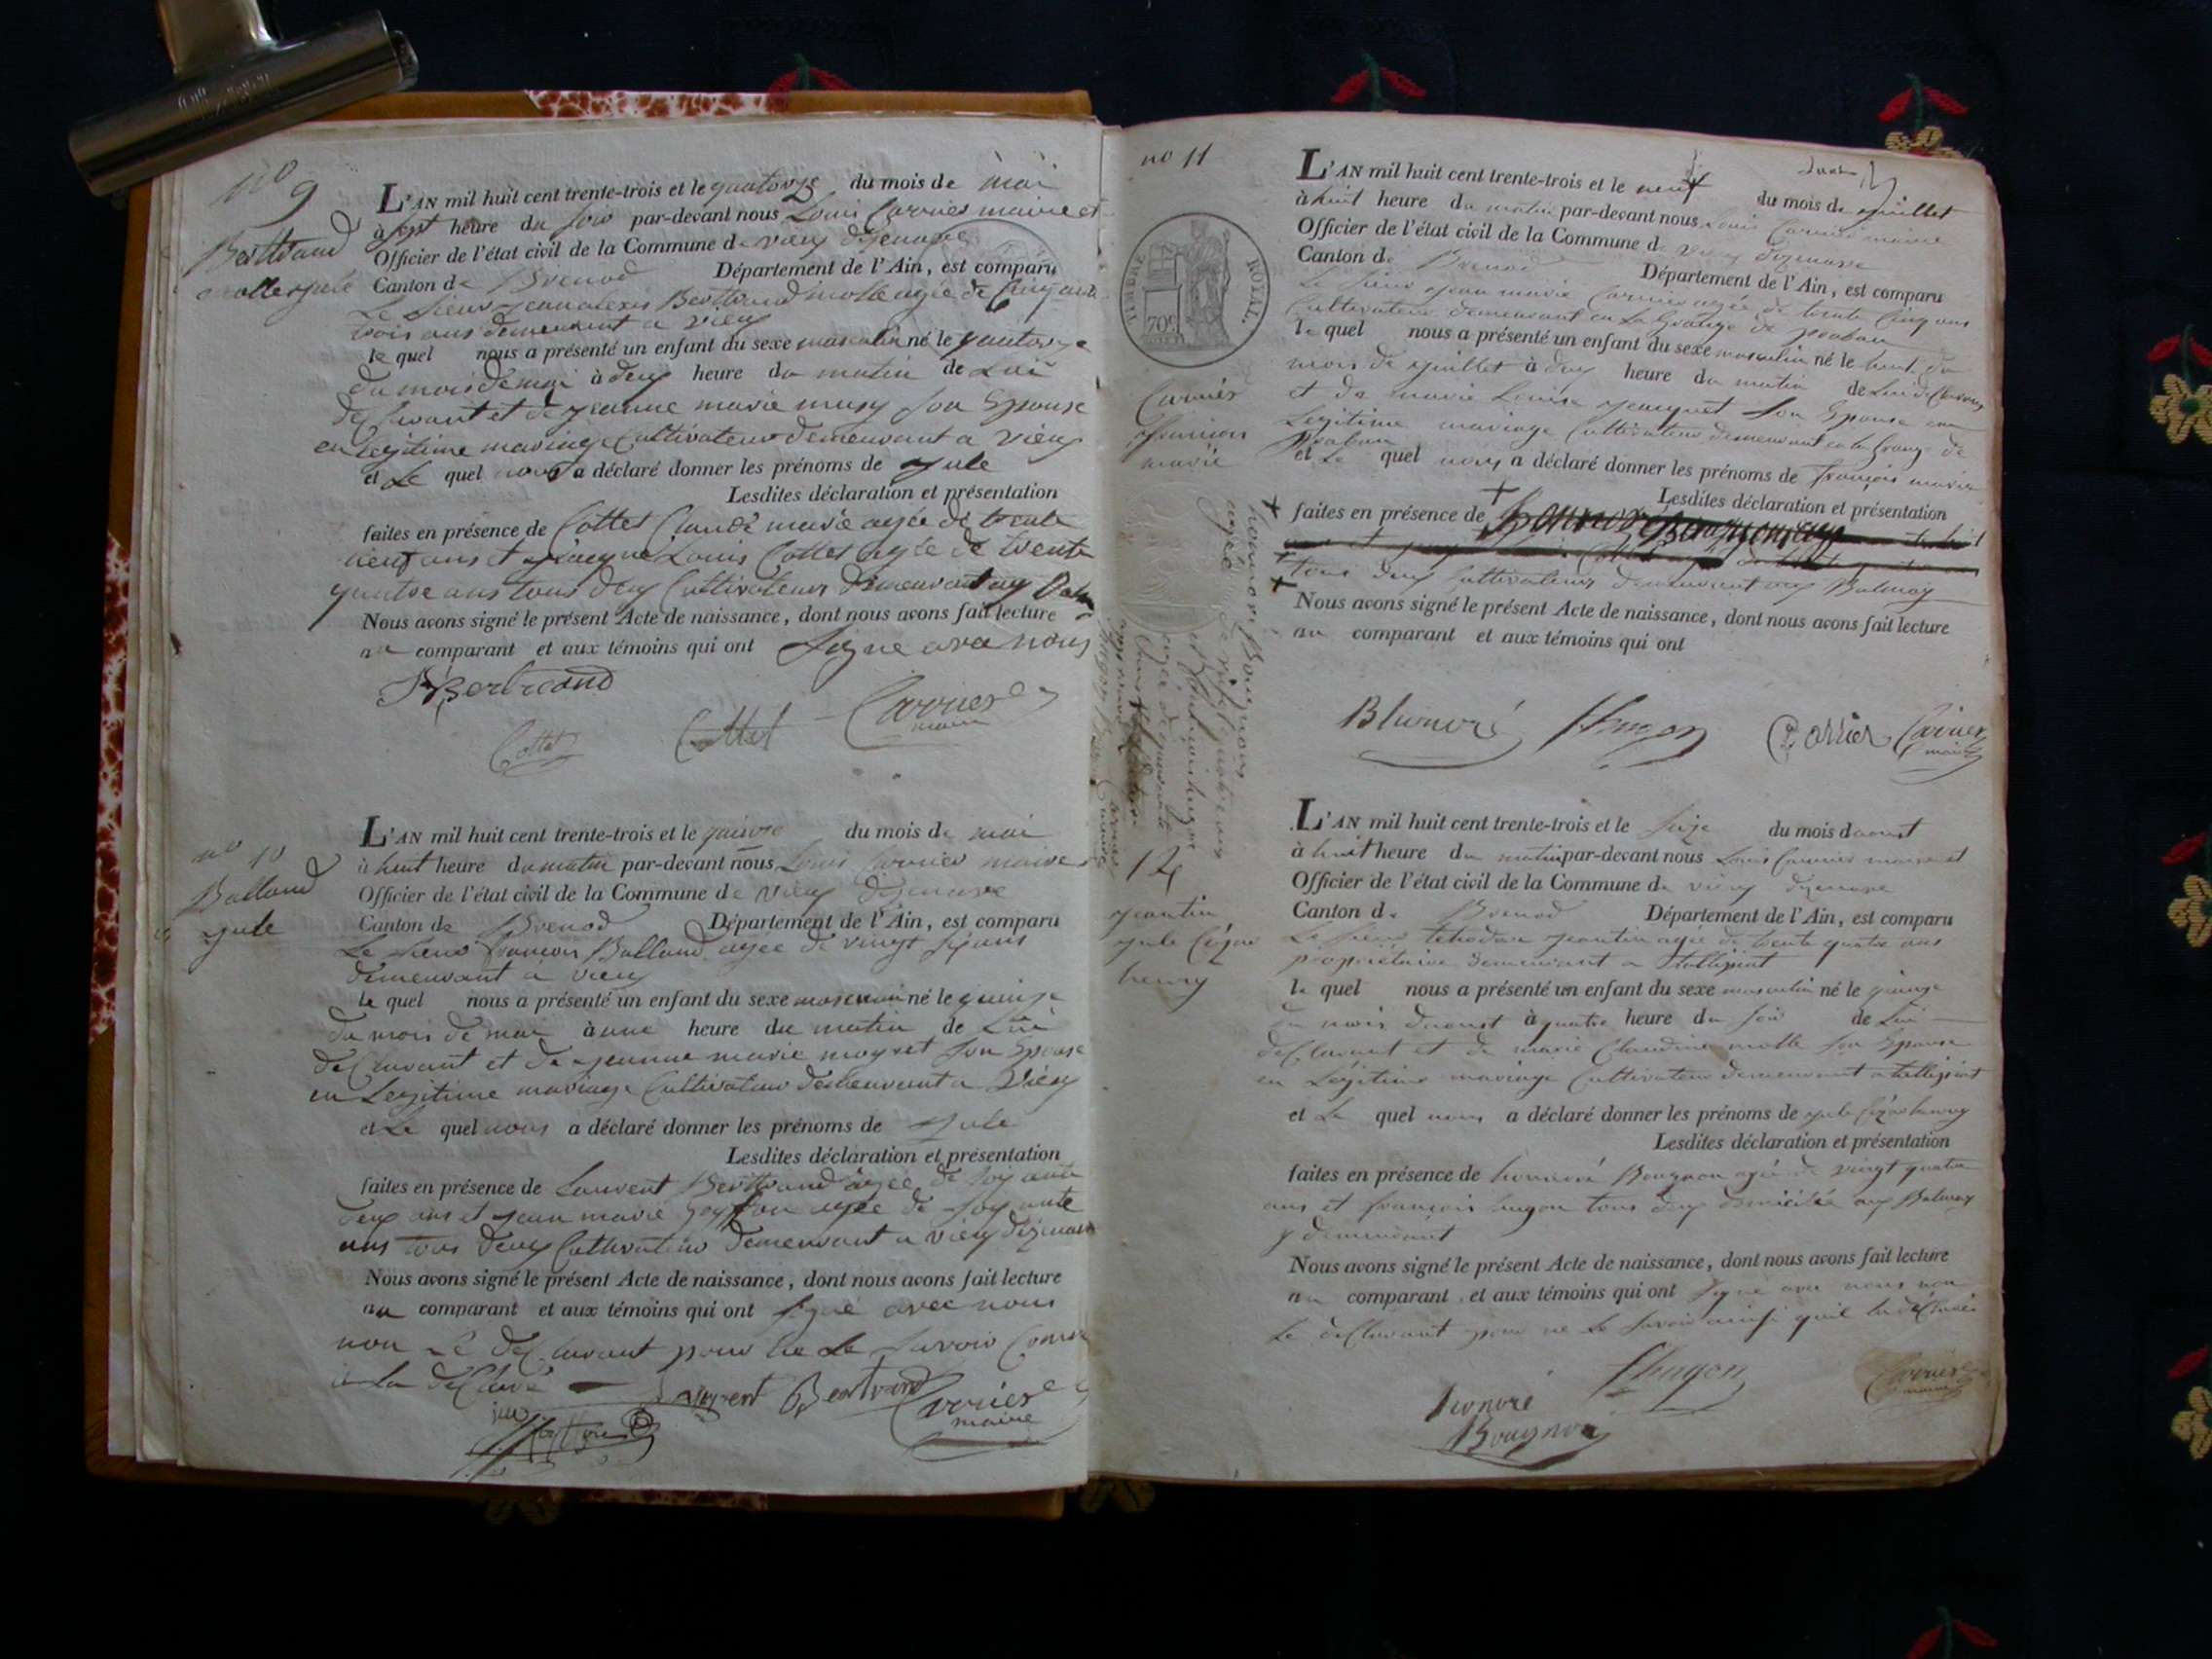 n° 9
Berthrand
molle jule
L'AN mil huit cent trente-trois et le quatorze du mois de mai
à sept heure du soir par-devant nous Louis Carrier maire et
Officier de l'état civil de la Commune de vieu dizenave
Canton de Brenod Département de l'Ain, est comparu
Le sieur jean alexis Berthrand molle agée de cinquante
trois ans demeurant a vieu
le quel nous a présenté un enfant du sexe masculin né le quatorze
du mois de mai à deux heure du matin de Lui
declarant et de jeanne marie musy son Epouse
en legitime mariage Cultivateur demeurant a vieu
et Le quel nous a déclaré donner les prénoms de jule
Lesdites déclaration et présentation
faites en présence de Cottet Claude marie agée de trente
neuf ans et jacque Louis Cottet agée de trente
quatre ans tous deux Cultivateurs demeurant aux
Nous avons signé le présent Acte de naissance, dont nous avons fait lecture
au comparant et aux témoins qui ont signe avec nous
Bertrand
Cottet Cottet Carrier
maire
n° 10
Balland
jule
L'AN mil huit cent trente-trois et le quinze du mois de mai
à huit heure du matin par-devant nous Louis Carrier maire
Officier de l'état civil de la Commune de vieu dizenave
Canton de Brenod Département de l'Ain, est comparu
Le sieur francois Balland agée de vingt six ans
demeurant a vieu
le quel nous a présenté un enfant du sexe masculin né le quinze
du mois de mai à une heure du matin de Lui
declarant et de jeanne marie moyret son Epouse
en Legitime mariage Cultivateur demeurant a vieu
et Le quel nous a déclaré donner les prénoms de jule
Lesdites déclaration et présentation
faites en présence de Laurent Berthrand agée de soixante
deux ans et jean marie agée de soixante
ans tous deux Cultivateur demeurant a vieu dizenave
Nous avons signé le présent Acte de naissance, dont nous avons fait lecture
au comparant et aux témoins qui ont signé avec nous
non Le declarant pour ne Le savoir Comme
il la declaré
Laurent Bertrand Carrier
maire
n° 11
TIMBRE ROYAL.
70c
Carrier
francois
marie
L'AN mil huit cent trente-trois et le neuf du mois de juillet
à huit heure du matin par-devant nous Louis Carrier maire
Officier de l'état civil de la Commune de vieu dizenave
Canton de Brenod Département de l'Ain, est comparu
Le sieur jean marie Carrier agée de trente cinq ans
Cultivateur demeurant en la Grange de
le quel nous a présenté un enfant du sexe masculin né le huit du
mois de juillet à deux heure du matin de Lui declarant
et de marie Louise jacquet son Epouse en
Legitime mariage Cultivateur demeurant en la Grange de
et Le quel nous a déclaré donner les prénoms de françois marie
Lesdites déclaration et présentation
faites en présence de
tous deux Cultivateurs demeurant aux Balmay
Nous avons signé le présent Acte de naissance, dont nous avons fait lecture
au comparant et aux témoins qui ont
honnoré Bougnon
agée de vingt quatre ans
et francois hugon
agée de quarante
Carrier Carrier
maire
12
jeantin
jule Cézar
henry
L'AN mil huit cent trente-trois et le seize du mois d'aoust
à huit heure du matin par-devant nous Louis Carrier maire et
Officier de l'état civil de la Commune de vieu dizenave
Canton de Brenod Département de l'Ain, est comparu
Le sieur jeantin agée de trente quatre ans
propriétaire demeurant a
le quel nous a présenté un enfant du sexe masculin né le quinze
du mois daoust à quatre heure du soir de Lui
declarant et de marie Claudine molle son Epouse
en Legitime mariage Cultivateur demeurant a
et Le quel nous a déclaré donner les prénoms de jule Cézar henry
Lesdites déclaration et présentation
faites en présence de honnoré Bougnon agée de vingt quatre
ans et françois hugon tous deux domiciliée aux Balmay
y demeurant
Nous avons signé le présent Acte de naissance, dont nous avons fait lecture
au comparant et aux témoins qui ont signé avec nous non
Le declarant pour ne Le savoir ainsi quil la déclaré
honoré
Bougnon
fhugon
Carrier
maire